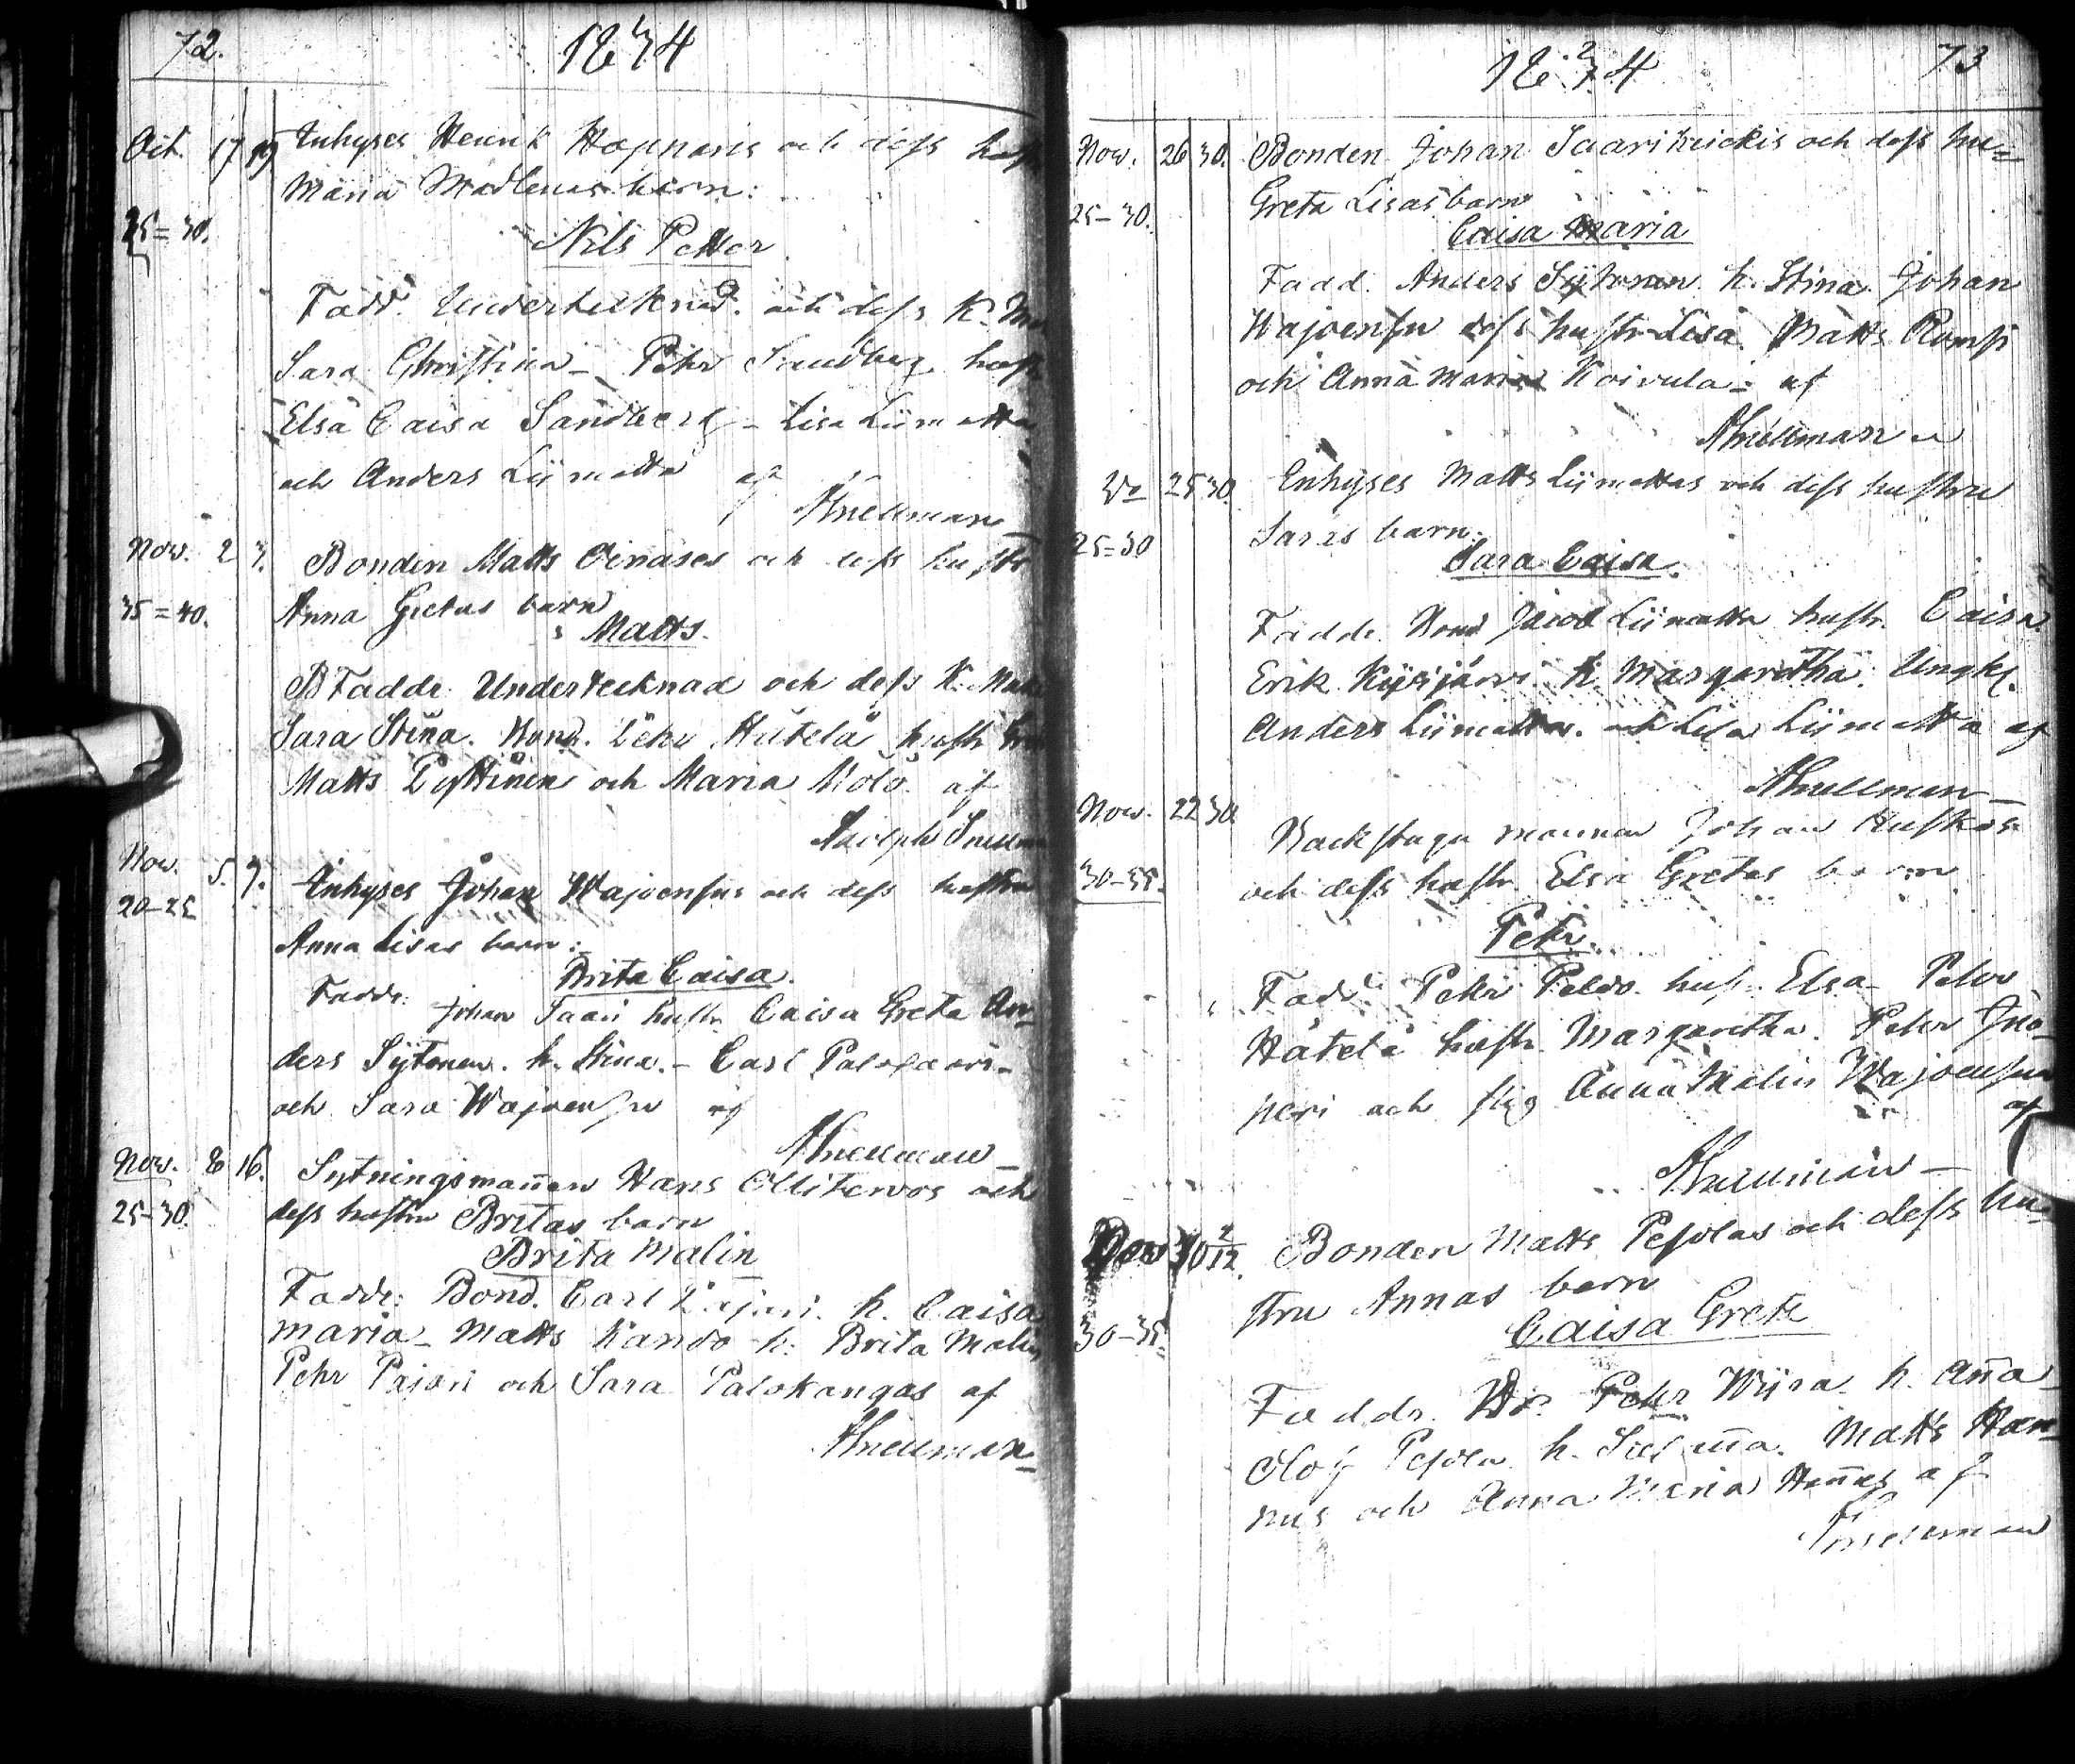 72.
1834
Oct. 17 19 Inhyses Henrik Hapnaris och dess hust
Maria Madlenas barn:
25=30.
Nils Petter
Fadd. Undertecknad. och dess K. Ma
Sara Christina - Pehr Sandberg hust
Elsa Caisa Sandberg - Lisa Liimatta
och Anders Liimatta af
ASnellman
Nov. 2 3. Bonden Matts Oinases och dess hustr
35=40. Anna Gretas barn
Matts.
Faddr. Undertecknad och dess K. Maka
Sara Stina. Bond. Pehr Hätelä hustr
Matts Pyttinen och Maria Nolo af
Adolph Snellm
Nov. 5. 9. Inhyses Johan Wajoensus och dess hustru
20-25
Anna Lisas barn:
Brita Caisa.
Faddr: Johan Saari hustr Caisa Greta An-
ders Sytonen. h. Stina. - Carl Palojärvi-
och Sara Wajoensu af
ASnellman
Nov. 8 16. Sytningsmannen Hans Ollitervos och
25-30. dess hustru Britas barn
Brita Malin
Faddr: Bond. Carl Pajari. h. Caisa
Maria - Matts Kando h. Brita Malin
Pehr Pajari och Sara Palokangas af
ASnellman
1834
73
Nov. 26 30. Bonden Johan Saarikuickis och dess hu=
25-30. Greta Lisas barn
Caisa Maria
Fadd. Anders Sytonen h. Stina. Johan
Wajoensu dess hustr Lisa. Matts Rompi
och Anna Maria Koivula - af
ASnellman
Do 25 30 Inhyses Matts Liimattas och dess hustru
25=30 Saras barn.
Sara Caisa.
Faddr. Bond Jacob Liimatta hustr. Caisa
Erik Kysijärvi h. Margaretha. Ungk.
Anders Liimatta. och Lisa Liimatta af
ASnellman
Nov. 22 30. Backstugu mannen Johan Huskos
30-35. och dess hustr Elsa Gretas barn
Pehr.
Fadd. Pehr Peldo hust. Elsa - Pehr
Hätelä hustr. Margaretha. Pehr
peri och pig Anna Malin Wajoensuu
af
ASnellman
Nov 30 2/12. Bonden Matts Pesolas och dess hu-
stru Annas barn
30-35. Caisa Greta
Faddr. Pehr Wiira. h. Anna
Olof Pesola h. Susanna. Matts Han-
nus och Anna Maria Hannus af
Snellman